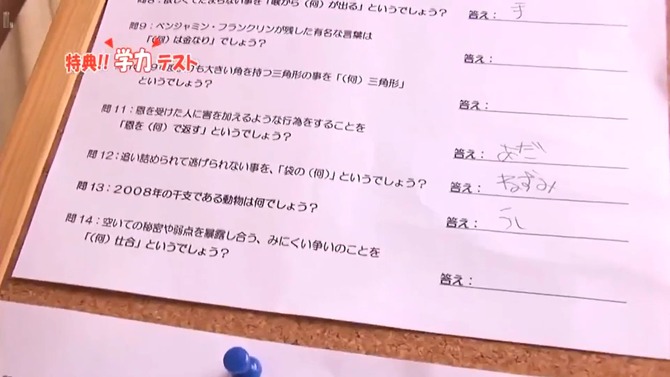 問8：欲しくてたまらない事を「喉から（何）が出る」というでしょう？ 答え： 手
問9：ベンジャミン・フランクリンが残した有名な言葉は 答え：
「（何）は金なり」でしょう？
特典!! 学力テスト
も大きい角を持つ三角形の事を「（何）三角形」 答え：
というでしょう？
問11：恩を受けた人に害を加えるような行為をすることを
「恩を（何）で返す」というでしょう？ 答え： あだ
問12：追い詰められて逃げられない事を、「袋の（何）」というでしょう？ 答え： ねずみ
問13：2008年の干支である動物は何でしょう？ 答え： うし
問14：空いての秘密や弱点を暴露し合う、みにくい争いのことを
「（何）仕合」というでしょう？ 答え：